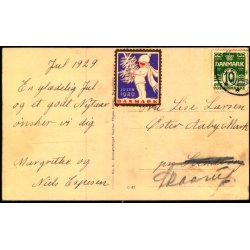 Jul 1929
En glædelig Jul
og et godt Nytaar
ønsker vi dig
Margrethe og
Niels Espesen
JULEN
1929
DANMARK
DANMARK
10
Lise Larsen
Øster Aaby Mark
pr.
Skaarup